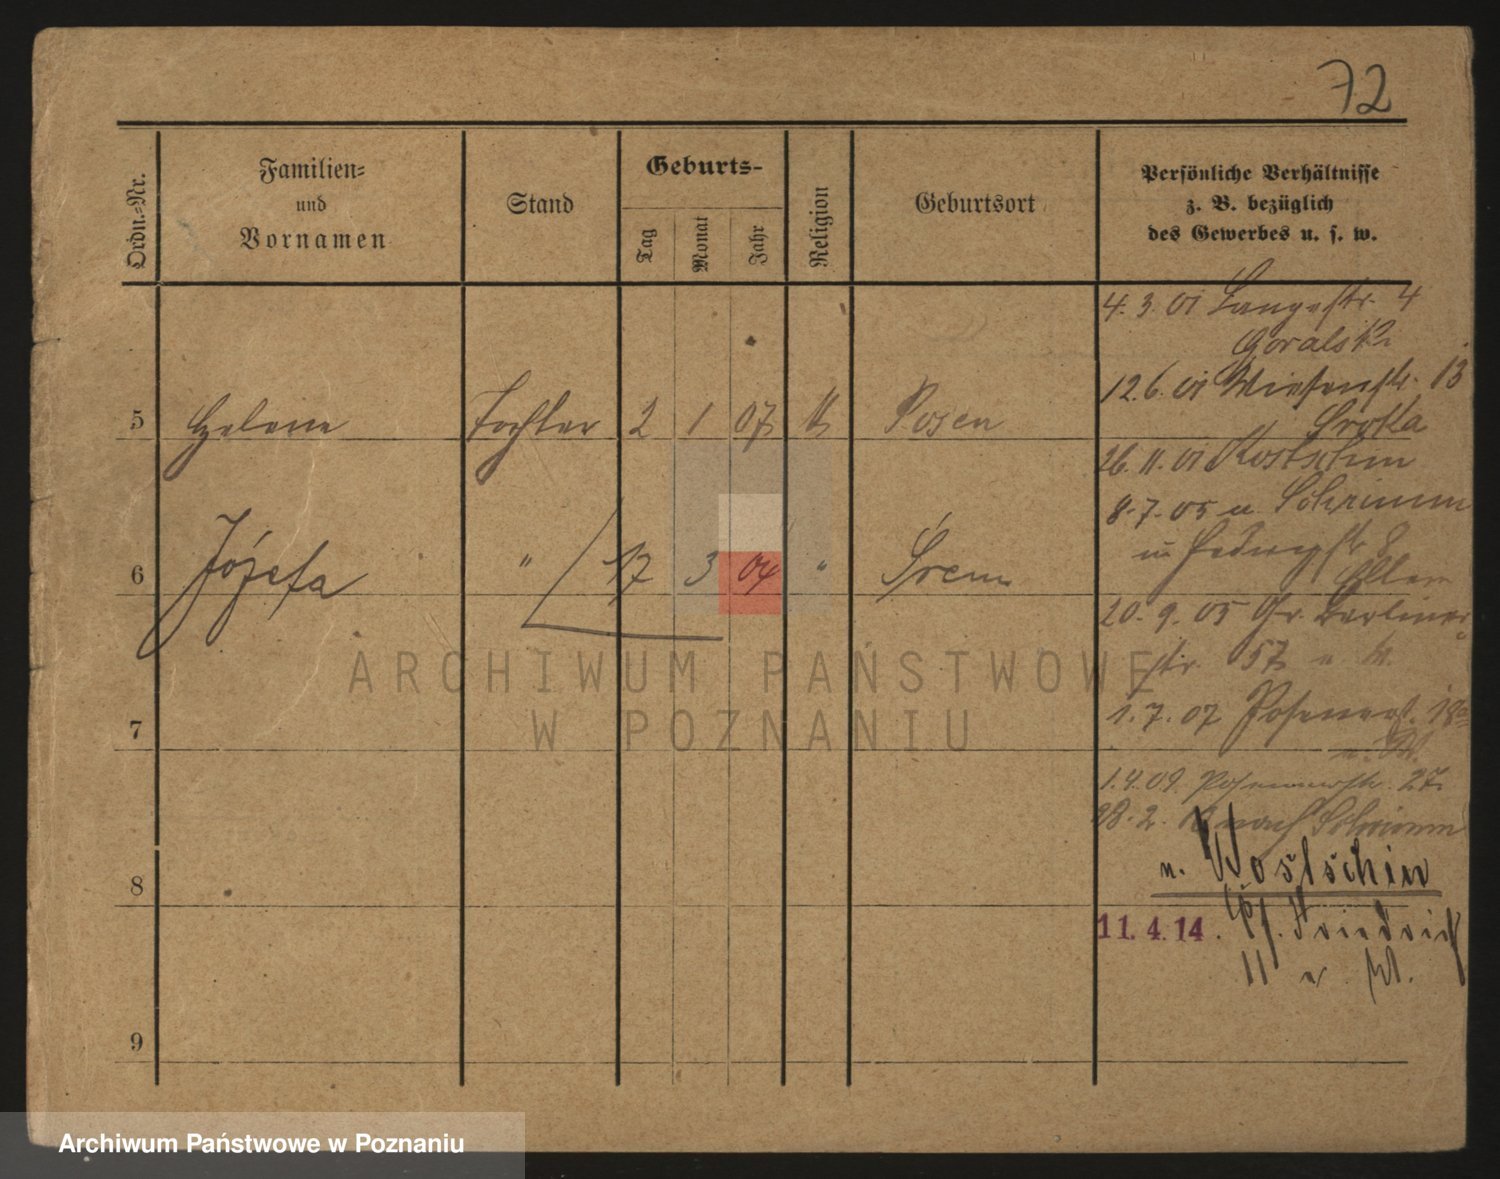 72
Ordn.-Nr.
Familien-
und
Vornamen
Stand
Geburts-
Tag
Monat
Jahr
Religion
Geburtsort
Persönliche Verhältnisse
z. B. bezüglich
des Gewerbes u. s. w.
4. 3. 01 Langestr. 4
Goralski
12. 6. 01 Wiesenstr. 13
Sroka
26. 11. 01 Kostschin
5 Helene Tochter 2 1 07 k Posen
8. 7. 05 u Schrimm
6 Józefa " 17 3 04 " Śrem
20. 9. 05 Gr. Berliner
str. 57 u W.
7
1. 7. 07 Posenerst. 18
u. W.
1. 4. 09. Posenerstr. 27
28. 2. nach Schrimm
8
u. Kostschin
11. 4. 14. Friedrich
11 u W.
9
ARCHIWUM PAŃSTWOWE
W POZNANIU
Archiwum Państwowe w Poznaniu